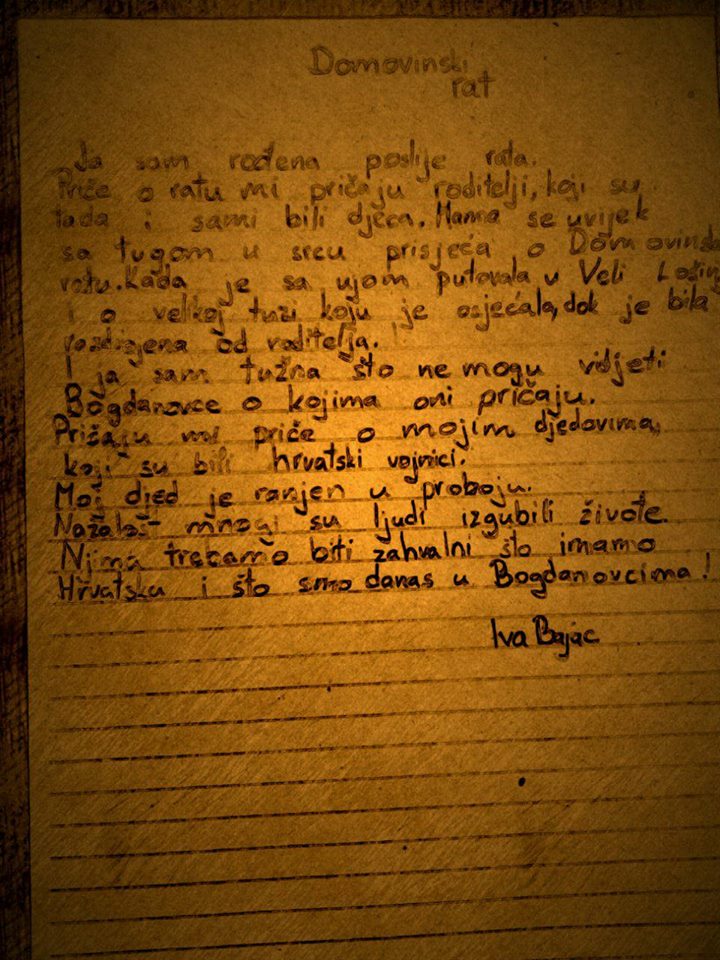 Domovinski
rat
Ja sam rođena poslije rata.
Priče o ratu mi pričaju roditelji, koji su
tada i sami bili djeca. Mama se uvijek
sa tugom u srcu prisjeća o Domovinsk
ratu. Kada je sa ujom putovala u Veli Lošinj
i o velikoj tuzi koju je osjećala, dok je bila
razdvojena od roditelja.
I ja sam tužna što ne mogu vidjeti
Bogdanovce o kojima oni pričaju.
Pričaju mi priče o mojim djedovima,
koji su bili hrvatski vojnici.
Moj djed je ranjen u proboju.
Nažalost mnogi su ljudi izgubili živote.
Njima trebamo biti zahvalni što imamo
Hrvatsku i što smo danas u Bogdanovcima!
Iva Bajac